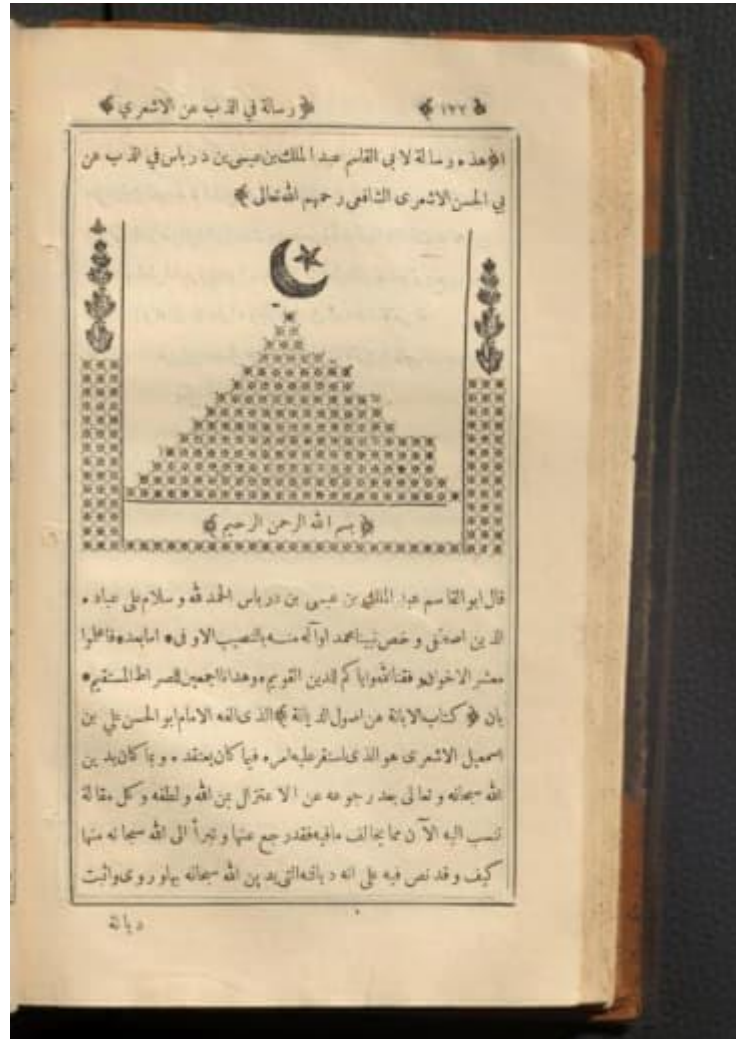 ﴿ ١٢٢ ﴾ ﴿ رسالة في الذب عن الاشعري ﴾
﴿ هذه رسالة لابي القاسم عبد الملك بن عيسى بن درباس في الذب عن
بي الحسن الاشعرى الشافعى رحمهم الله تعالى ﴾
﴿ بسم الله الرحمن الرحيم ﴾
قال ابو القاسم عبد الملك بن عيسى بن درباس الحمد لله و سلام على عباده
الذين اصطفى و خص نبينا محمدا وآله منه بالنصيب الاوفى * اما بعد * فاعلموا
معشر الاخوان وفقنا الله واياكم للدين القويم * وهدانا اجمعين للصراط المستقيم *
بان ﴿ كتاب الابانة عن اصول الديانة ﴾ الذى الفه الامام ابو الحسن علي بن
اسمعيل الاشعرى هو الذى استقر عليه امره فيما كان يعتقده و بما كان يدين
الله سبحانه و تعالى بعد رجوعه عن الاعتزال بمن الله و لطفه و كل مقالة
تنسب اليه الآن مما يخالف ما فيه فقد رجع عنها و تبرأ الى الله سبحانه منها
كيف و قد نص فيه على انه ديانته التى يدين الله سبحانه بها و روى واثبت
ديانة